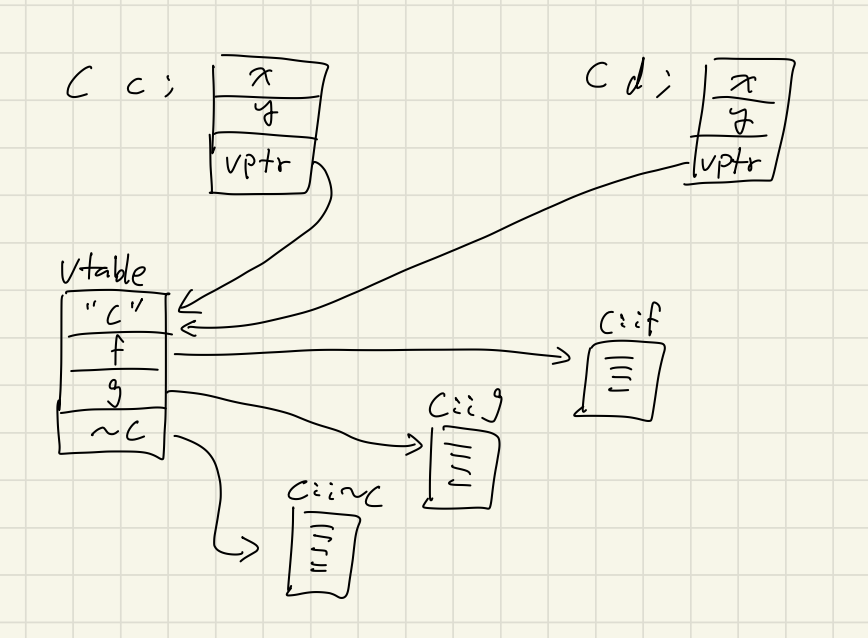 C c;
x
y
vptr
C d;
x
y
vptr
vtable
"C"
f
g
~C
C::f
C::g
C::~C